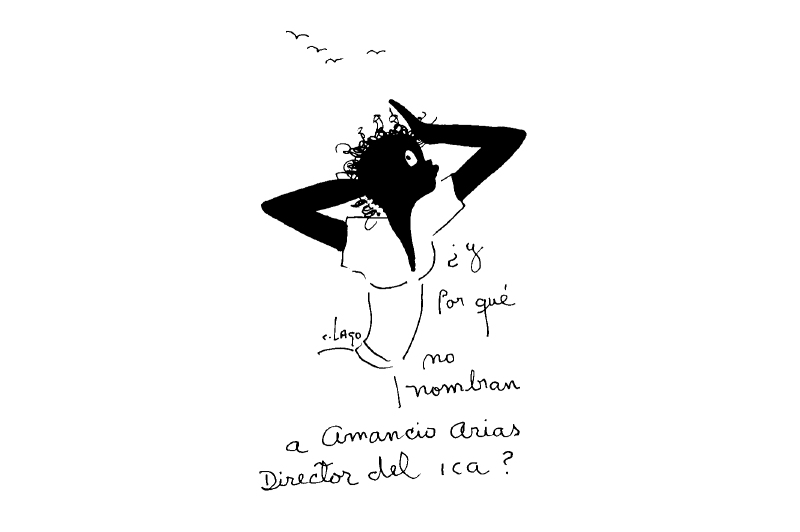 ¿y
Por qué
c. LAgo
no
nombran
a Amancio Arias
Director del ica?